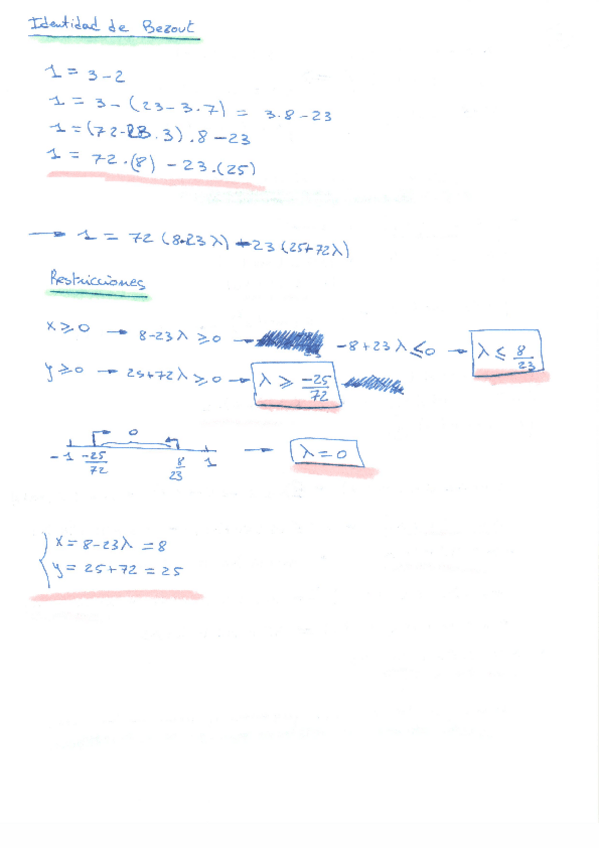 Identidad de Bezout
1 = 3 - 2
1 = 3 - (23 - 3.7) = 3.8 - 23
1 = (72 - 23.3).8 - 23
1 = 72.(8) - 23.(25)
→ 1 = 72 (8-23λ) + 23 (25+72λ)
Restricciones
x ≥ 0 → 8-23λ ≥ 0 → -8+23λ ≤ 0 → λ ≤ 8/23
y ≥ 0 → 25+72λ ≥ 0 → λ ≥ -25/72
0
-1 -25/72 8/23 1 → λ = 0
x = 8-23λ = 8
y = 25+72 = 25